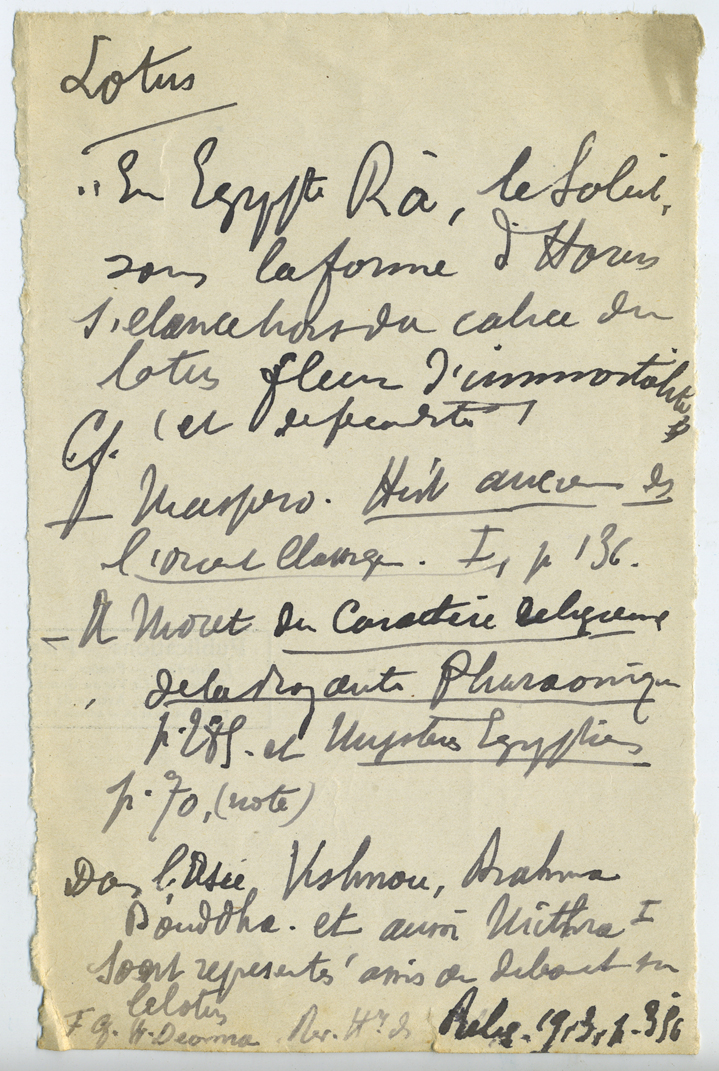 Lotus
"En Egypte Râ, le Soleil,
sous la forme d'Horus
s'elance hors du calice du
lotus fleur d'immortalité
(et de fecondité)
Cf.
- Maspero. Hist ancienne des
l'orient Classique. I, p 136.
- A Moret du Caractère religieux
de la Royauté Pharaonique
p. 285. et Mystères Egyptiens
p. 70, (note)
Dans l'Asie Vishnou, Brahma
Bouddha. et aussi Mithra I
sont representés assis ou debout sur
le lotus
I Cf. W. Deonna Rev. Hre des Relig. 1913, p. 356